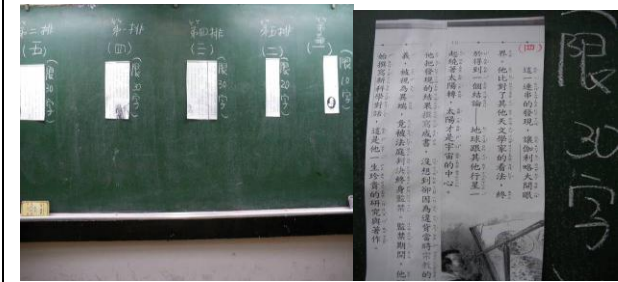 第二排
(五)
第一排
(四)
(限30字)
第四排
(三)
(限30字)
第五排
(二)
(限20字)
(一)
(限10字)
(四)
這一連串的發現，讓伽利略大開眼
界。他比對了其他天文學家的看法，終
於得到一個結論——地球跟其他行星一
起繞著太陽轉，太陽才是宇宙的中心。
他把發現的結果撰寫成書，沒想到卻因為違背當時宗教的
義，被視為異端，竟被法庭判決終身監禁。監禁期間，他
始撰寫新科學對話，這是他一生珍貴的研究與著作。
(限30字)